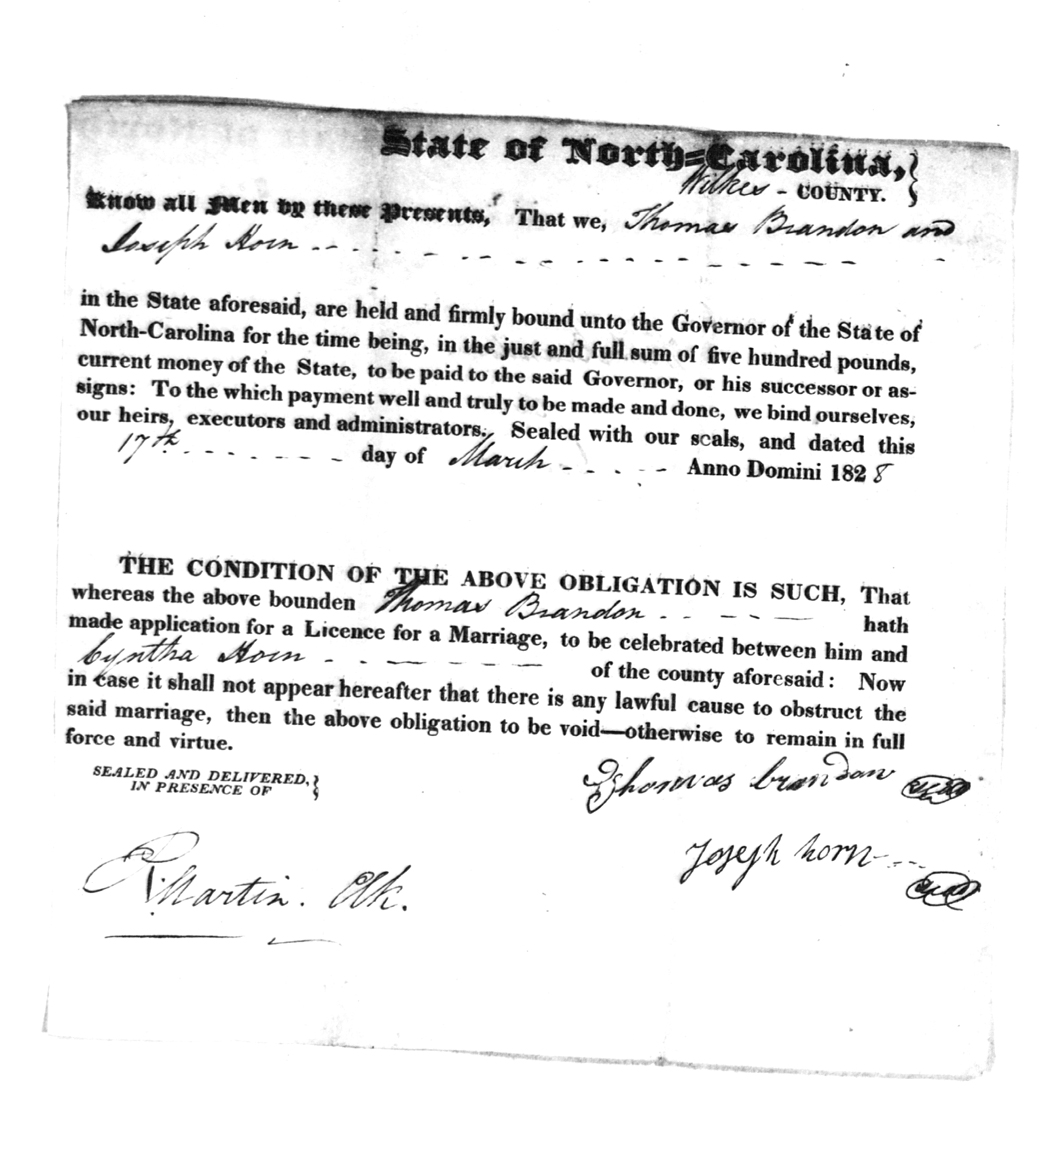 State of North-Carolina,
Wilkes - COUNTY.
Know all Men by these Presents, That we, Thomas Brandon and
Joseph Horn
in the State aforesaid, are held and firmly bound unto the Governor of the State of
North-Carolina for the time being, in the just and full sum of five hundred pounds,
current money of the State, to be paid to the said Governor, or his successor or as-
signs: To the which payment well and truly to be made and done, we bind ourselves,
our heirs, executors and administrators. Sealed with our seals, and dated this
17th day of March Anno Domini 1828
THE CONDITION OF THE ABOVE OBLIGATION IS SUCH, That
whereas the above bounden Thomas Brandon hath
made application for a Licence for a Marriage, to be celebrated between him and
Cyntha Horn of the county aforesaid: Now
in case it shall not appear hereafter that there is any lawful cause to obstruct the
said marriage, then the above obligation to be void—otherwise to remain in full
force and virtue.
SEALED AND DELIVERED,
IN PRESENCE OF
Thomas brandon seal
Joseph horn seal
R. Martin. Clk.